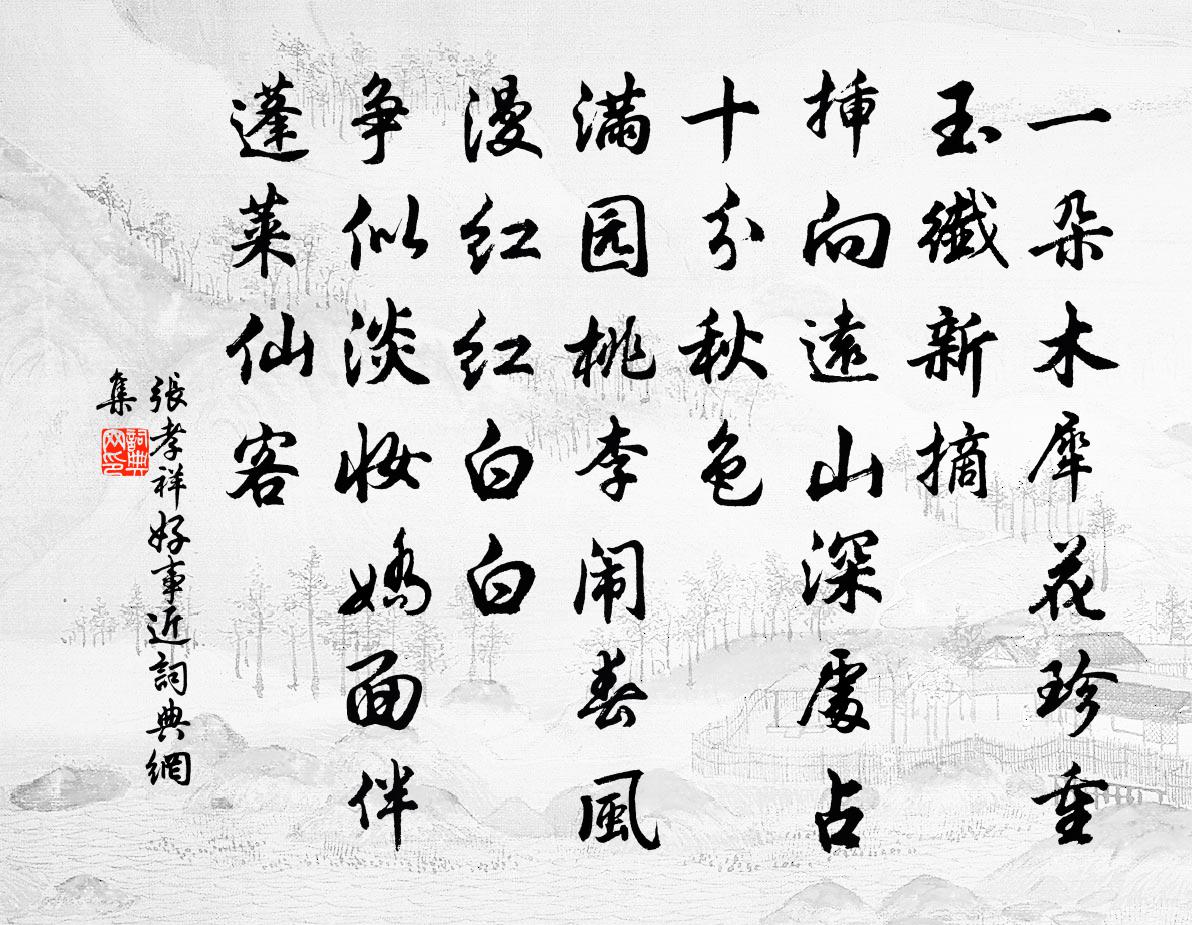 一朵木犀花珍重
玉纖新摘
挿向遠山深處占
十分秋色
满园桃李闹春風
漫红红白白
争似淡妆嬌面伴
蓬莱仙客
張孝祥好事近詞典網
集
詞典
网印